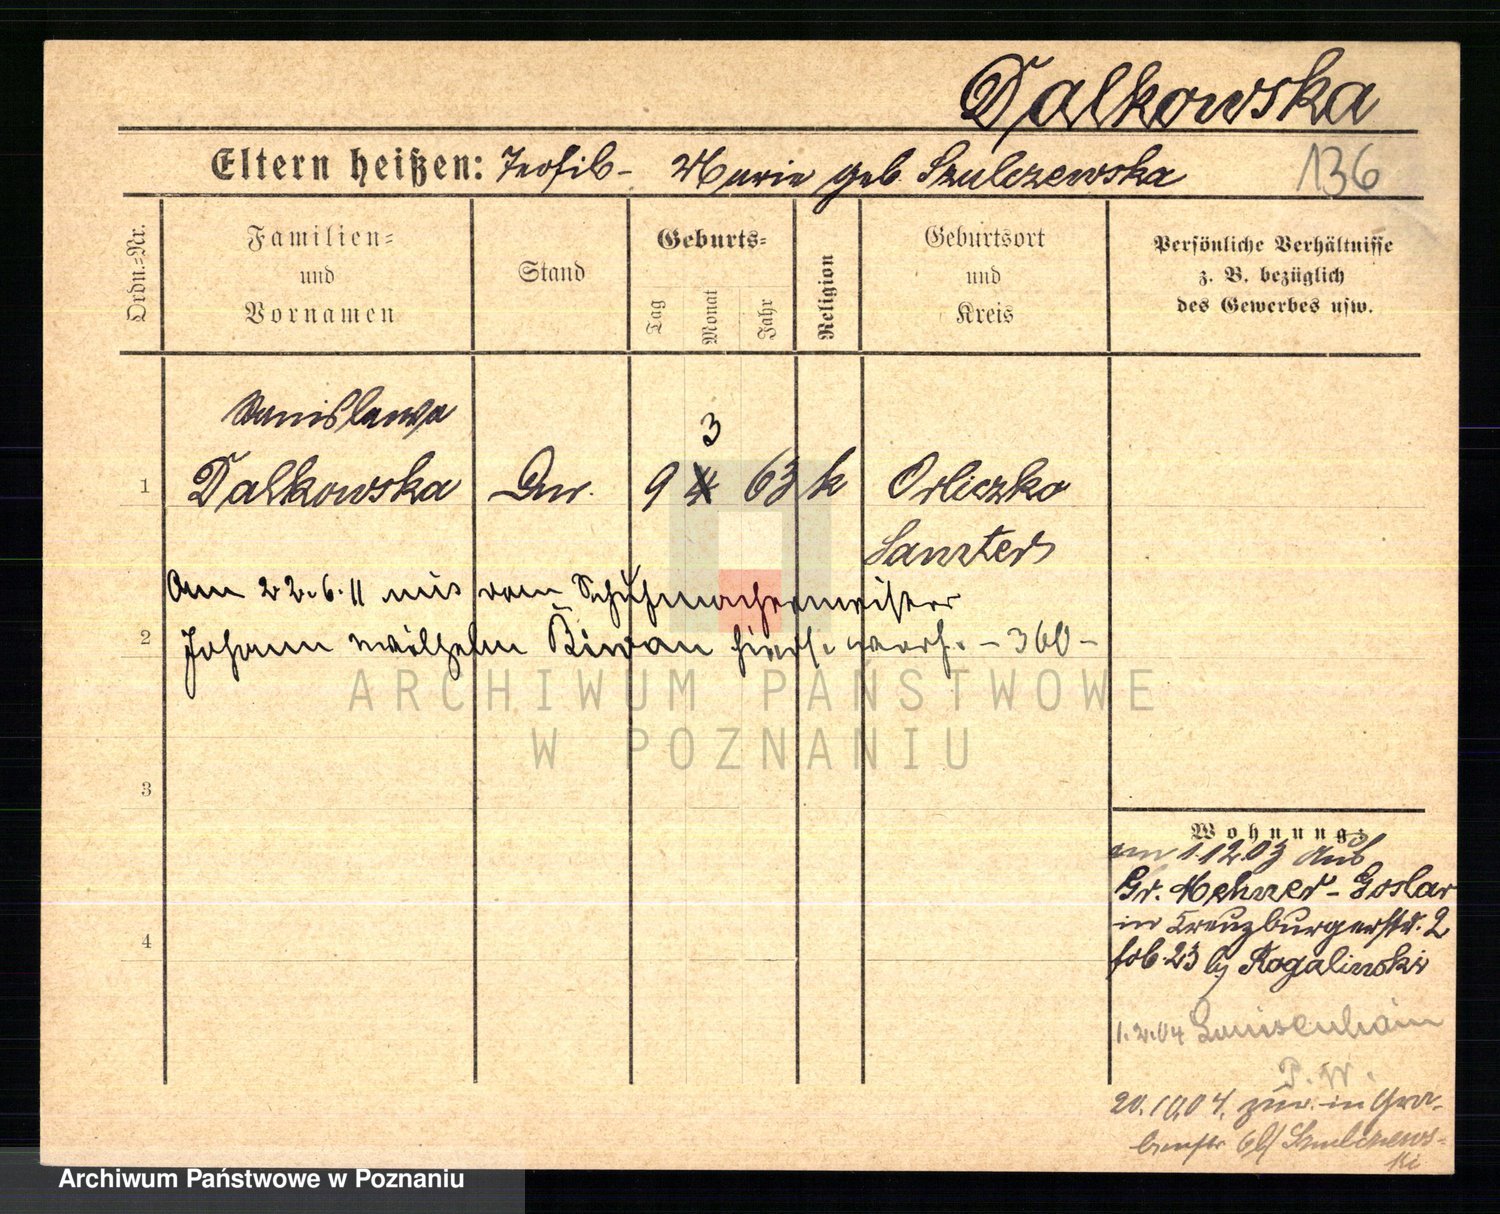 Dalkowska
Eltern heißen: Teofil - Marie geb. Szulczewska
136
Ordn.=Nr.
Familien=
und
Vornamen
Stand
Geburts=
Tag
Monat
Jahr
Religion
Geburtsort
und
Kreis
Persönliche Verhältnisse
z. B. bezüglich
des Gewerbes usw.
Stanislawa
3
1 Dalkowska 9 4 63 k Orliczko
Samter
Am 22.6.11 mit dem Schuhmachermeister
2 Johann Wilhelm verh. - 360 -
ARCHIWUM PAŃSTWOWE
W POZNANIU
3
Wohnung:
am 1.12.03 aus
Gr. - Goslar
4 in Kreuzburgerstr. 2
bei Rogalinski
1.2.04 Louisenhain
P. W.
20.10.04. zur. in Gra-
benstr 6 b/ Szulczews-
ki
Archiwum Państwowe w Poznaniu